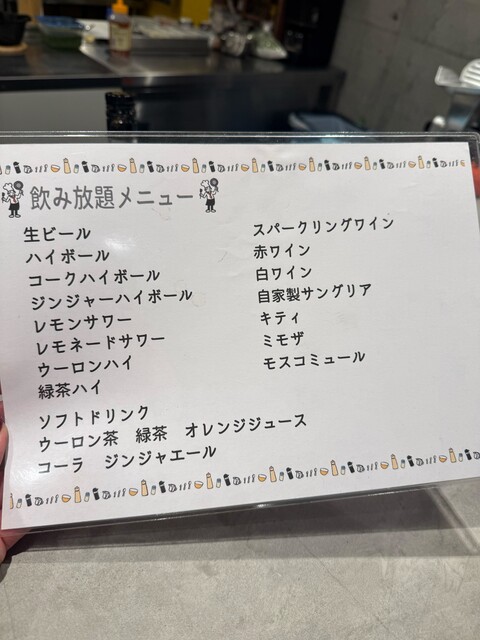 飲み放題メニュー
生ビール
ハイボール
コークハイボール
ジンジャーハイボール
レモンサワー
レモネードサワー
ウーロンハイ
緑茶ハイ
スパークリングワイン
赤ワイン
白ワイン
自家製サングリア
キティ
ミモザ
モスコミュール
ソフトドリンク
ウーロン茶 緑茶 オレンジジュース
コーラ ジンジャエール